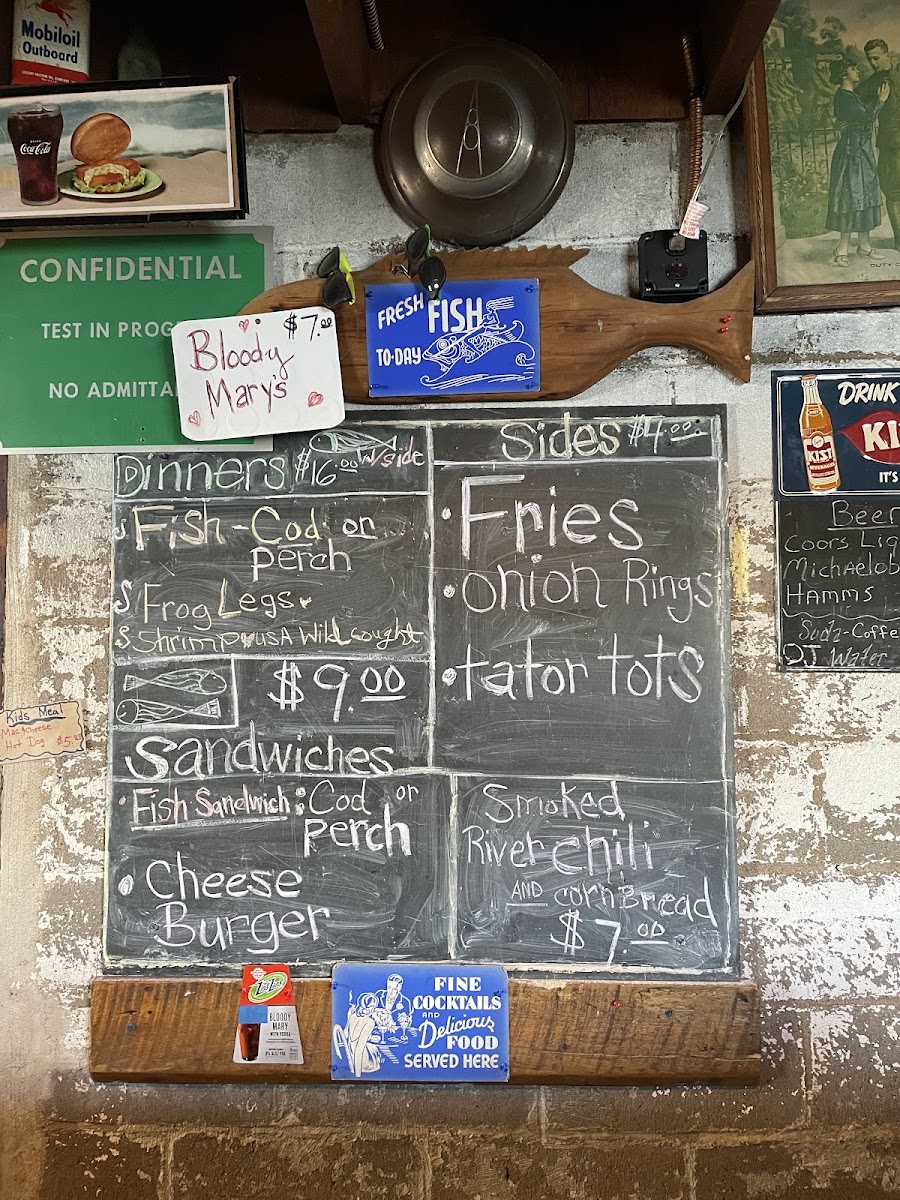 Mobiloil
Outboard
Coca-Cola
CONFIDENTIAL
TEST IN PROG
NO ADMITTA
Bloody
Mary's
$7.00
FRESH
FISH
TO-DAY
DUTY
DRINK
KIST
KI
IT'S
Beer
Coors Lig
Michaelob
HAMMS
Soda-Coffe
OJ Water
Dinners $16.00 w/side
Fish-Cod or
perch
Frog Legs
Shrimp USA Wild caught
$9.00
Sandwiches
Fish Sandwich: Cod or
perch
Cheese
Burger
Sides $4.00
Fries
onion Rings
tator tots
Smoked
River chili
AND cornBread
$7.00
Kids Meal
Mac & cheese
Hot Dog $5.
BLOODY
MARY
WITH VODKA
FINE
COCKTAILS
AND
Delicious
FOOD
SERVED HERE